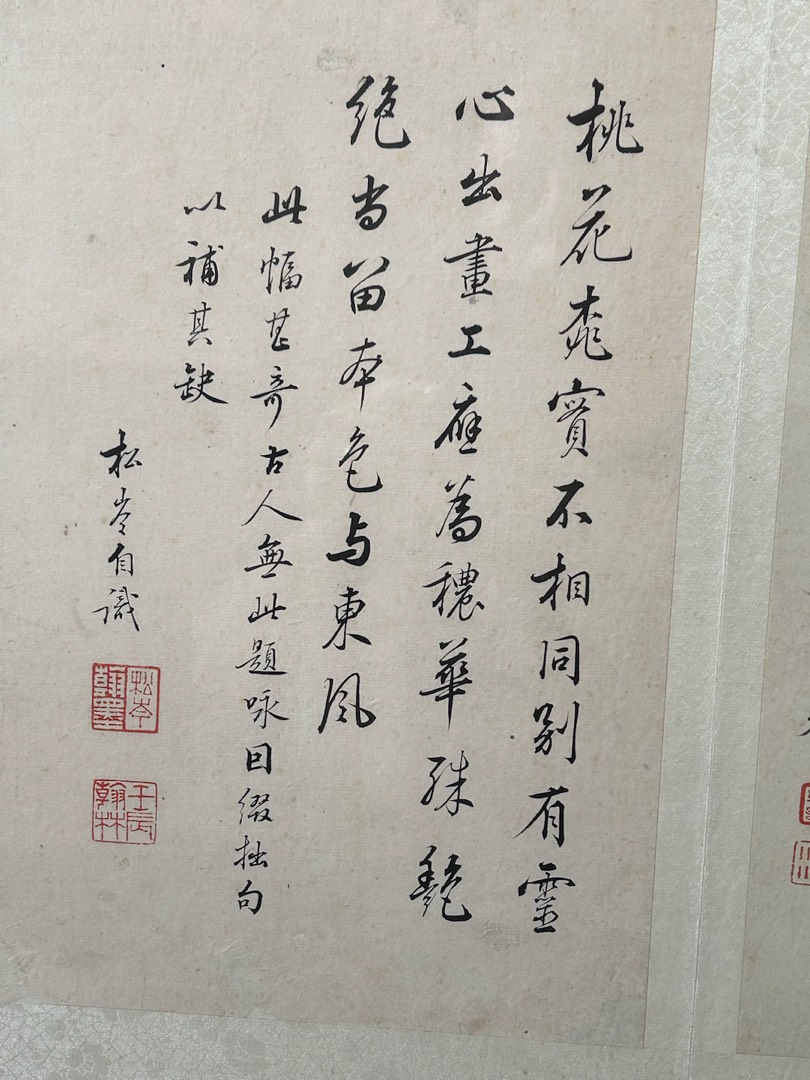 桃花桃實不相同別有靈
心出畫工應為穠華殊艷
絕尚留本色与東風
此幅甚奇古人無此題咏因綴拙句
以補其缺
松岑自識
松岑
壬辰翰林